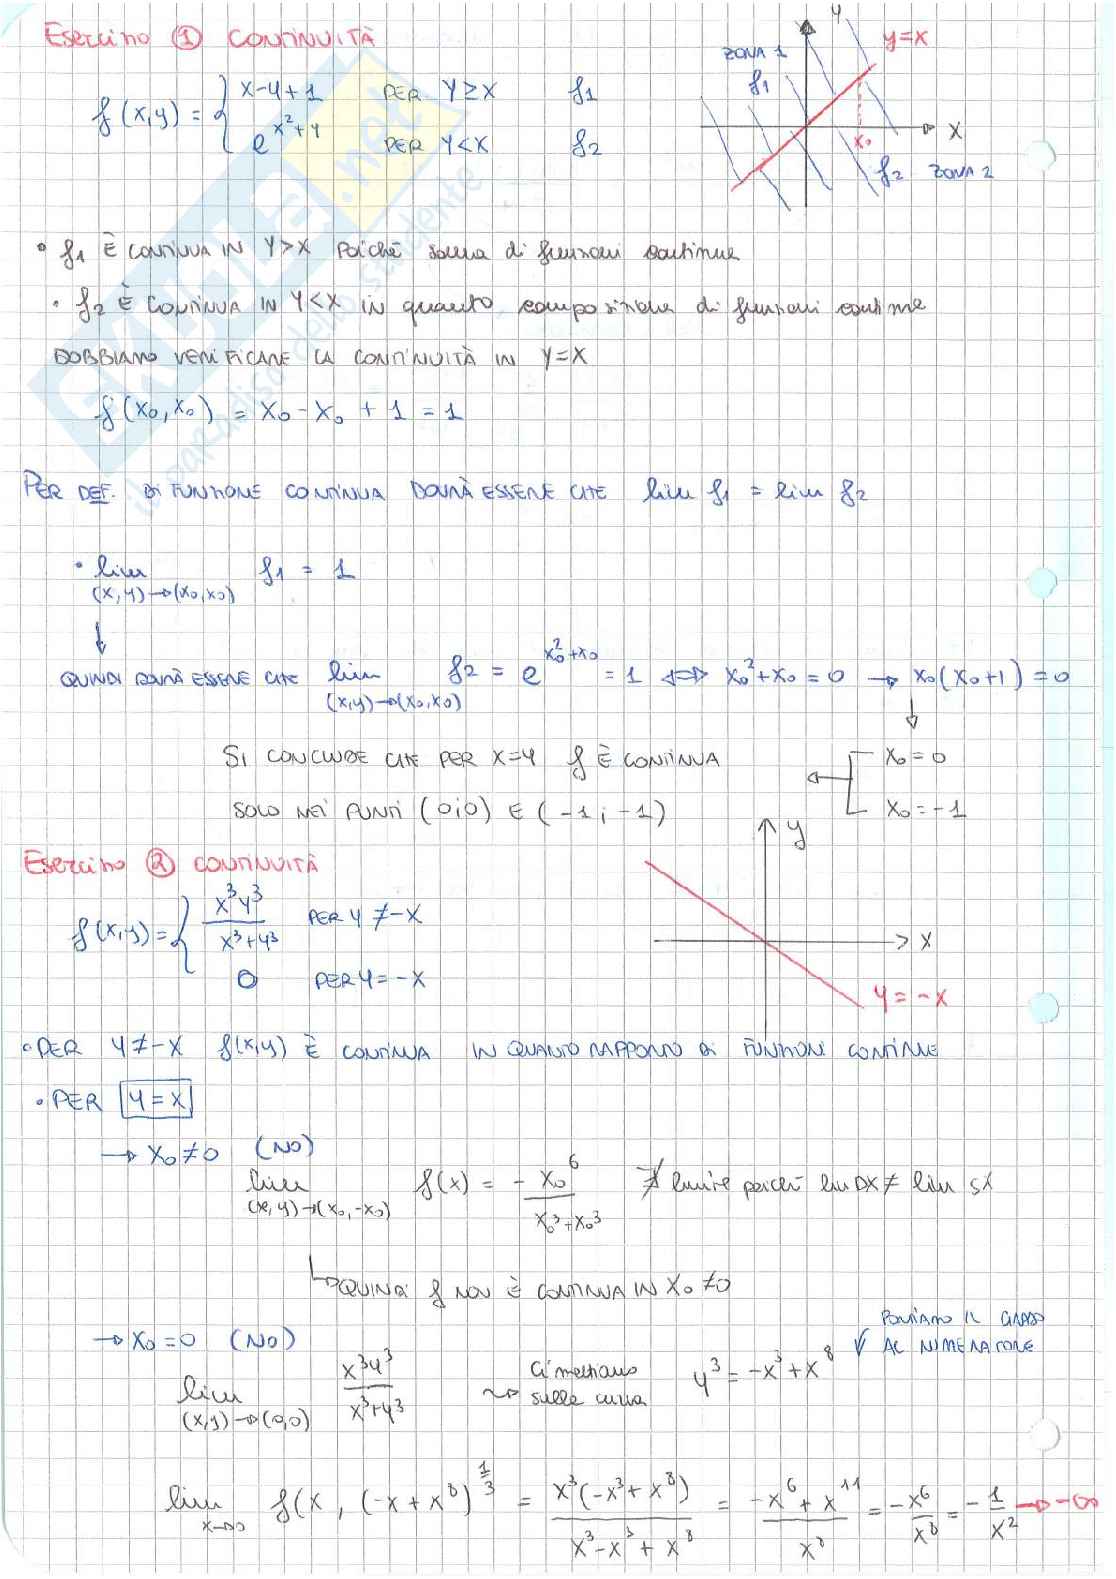 Esercizio ① CONTINUITÀ
f(x,y) = { x-y+1 PER y≥x f1
e^{x²+y} PER y<x f2
y
y=x
ZONA 1
f1
x
x₀
f2 ZONA 2
• f1 È CONTINUA IN y>x poiché somma di funzioni continue
• f2 È CONTINUA IN y<x in quanto composizione di funzioni continue
DOBBIAMO VERIFICARE LA CONTINUITÀ IN y=x
f(x₀,x₀) = x₀-x₀+1 = 1
PER DEF. DI FUNZIONE CONTINUA DOVRÀ ESSERE CHE lim f1 = lim f2
• lim f1 = 1
(x,y)→(x₀,x₀)
↓
QUINDI DOVRÀ ESSERE CHE lim f2 = e^{x₀²+x₀} = 1 ⟺ x₀²+x₀=0 → x₀(x₀+1)=0
(x,y)→(x₀,x₀)
↓
SI CONCLUDE CHE PER x=y f È CONTINUA ← x₀=0
SOLO NEI PUNTI (0;0) E (-1;-1) x₀=-1
Esercizio ② CONTINUITÀ
f(x,y)= { x³y³/x³+y³ PER y≠-x
0 PER y=-x
y
x
y=-x
• PER y≠-x f(x,y) È CONTINUA IN QUANTO RAPPORTO DI FUNZIONI CONTINUE
• PER y=x
→ x₀≠0 (NO)
lim f(x) = -x₀⁶/x₀³+x₀³ ∄ limite perché lim DX ≠ lim SX
(x,y)→(x₀,-x₀)
↳ QUINDI f NON È CONTINUA IN x₀≠0
→ x₀=0 (NO)
lim x³y³/x³+y³ ⤳ Ci mettiamo sulla curva y³=-x³+x⁸ PORTIAMO IL GRADO AL NUMERATORE
(x,y)→(0,0)
lim f(x, (-x+x⁸)^{1/3} = x³(-x³+x⁸)/x³-x³+x⁸ = -x⁶+x¹¹/x⁸ = -x⁶/x⁸ = -1/x² → -∞
x→0